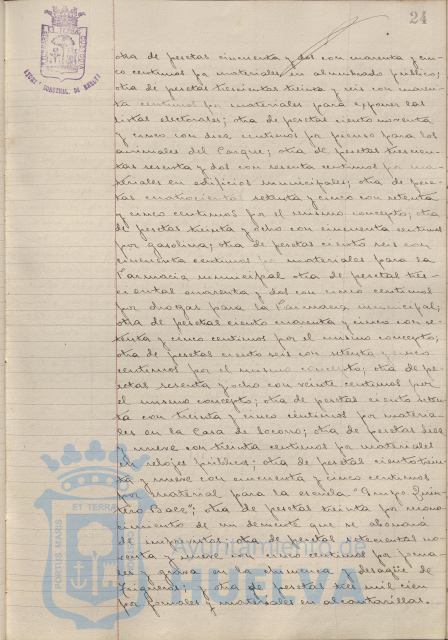 24
otra de pesetas cincuenta y dos con cuarenta y cin-
co centimos por materiales en alumbrado publico;
otra de pesetas trescientas treinta y seis con
centimos por materiales para exponer las
listas electorales; otra de pesetas ciento noventa
y cinco con diez centimos por pienso para los
animales del Parque; otra de pesetas trescien-
tas sesenta y dos con sesenta centimos por ma-
teriales en edificios municipales; otra de pese-
tas cuatrocientas setenta y cinco con setenta
y cinco centimos por el mismo concepto; otra
de pesetas treinta y ocho con cincuenta centimos
por gasolina; otra de pesetas ciento seis con
cincuenta centimos por materiales para la
Farmacia municipal otra de pesetas tres-
cientas cuarenta y dos con cinco centimos
por drogas para la Farmacia municipal;
otra de pesetas ciento cuarenta y cinco con se-
tenta y cinco centimos por el mismo concepto;
otra de pesetas ciento seis con setenta y cinco
centimos por el mismo concepto; otra de pe-
setas sesenta y ocho con veinte centimos por
el mismo concepto; otra de pesetas ciento
con treinta y cinco centimos por materia-
les en la Casa de Socorro; otra de pesetas diez
y nueve con treinta centimos por materiales
en relojes publicos; otra de pesetas ciento trein-
ta y nueve con cincuenta y cinco centimos
por material para la escuela "Grupo Quin-
tero Baez"; otra de pesetas treinta por
cimiento de un demente que se abonará
de imprevistos; otra de pesetas no-
venta y nueve con cinco centimos por jorna-
les y grava en la chimenea y desagüe de
Trigueros; y otra de pesetas tres mil cien
por jornales y materiales en alcantarillas.
PORTUS MARIS ET TERRAE
Ayuntamiento de
HUELVA